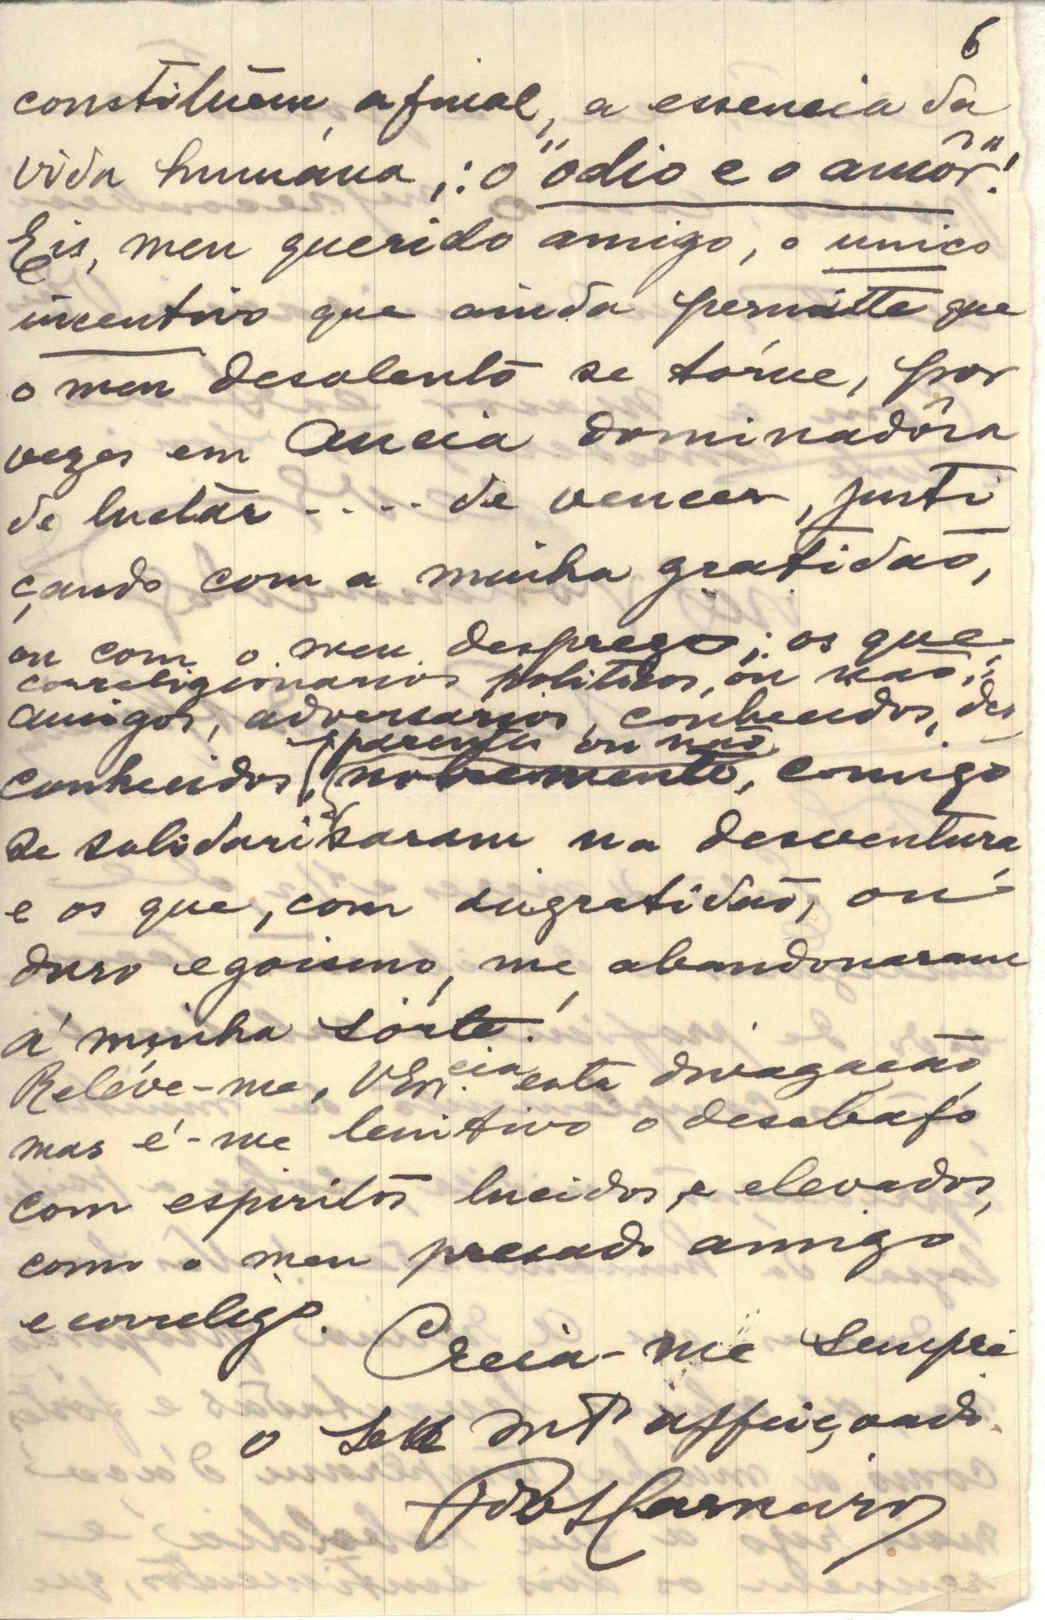 6
constituem, afinal, a essencia da
vida humana,: o "odio e o amôr"!
Eis, meu querido amigo, o unico
incentivo que ainda permitte que
o meu desalento se tórne, por
vezes em ancia dominadôra
de luctár .... de vencer, justi
çando com a minha gratidão,
ou com o meu desprezo; os que
correligionarios politicos, ou não;
amigos, adversarios, conhecidos, des
parentes ou não
conhecidos, nobremente, comigo
se solidarisaram na desventura
e os que, com ingratidão, ou
duro egoismo, me abandonaram
á minha sórte!
Reléve-me, VExcia esta divagação,
mas é-me lenitivo o desabafo
com espiritos lucidos, e elevados,
como o meu presado amigo
e correligo.
Creia-me sempre
o seu mto affeiçoado.
Carneiro